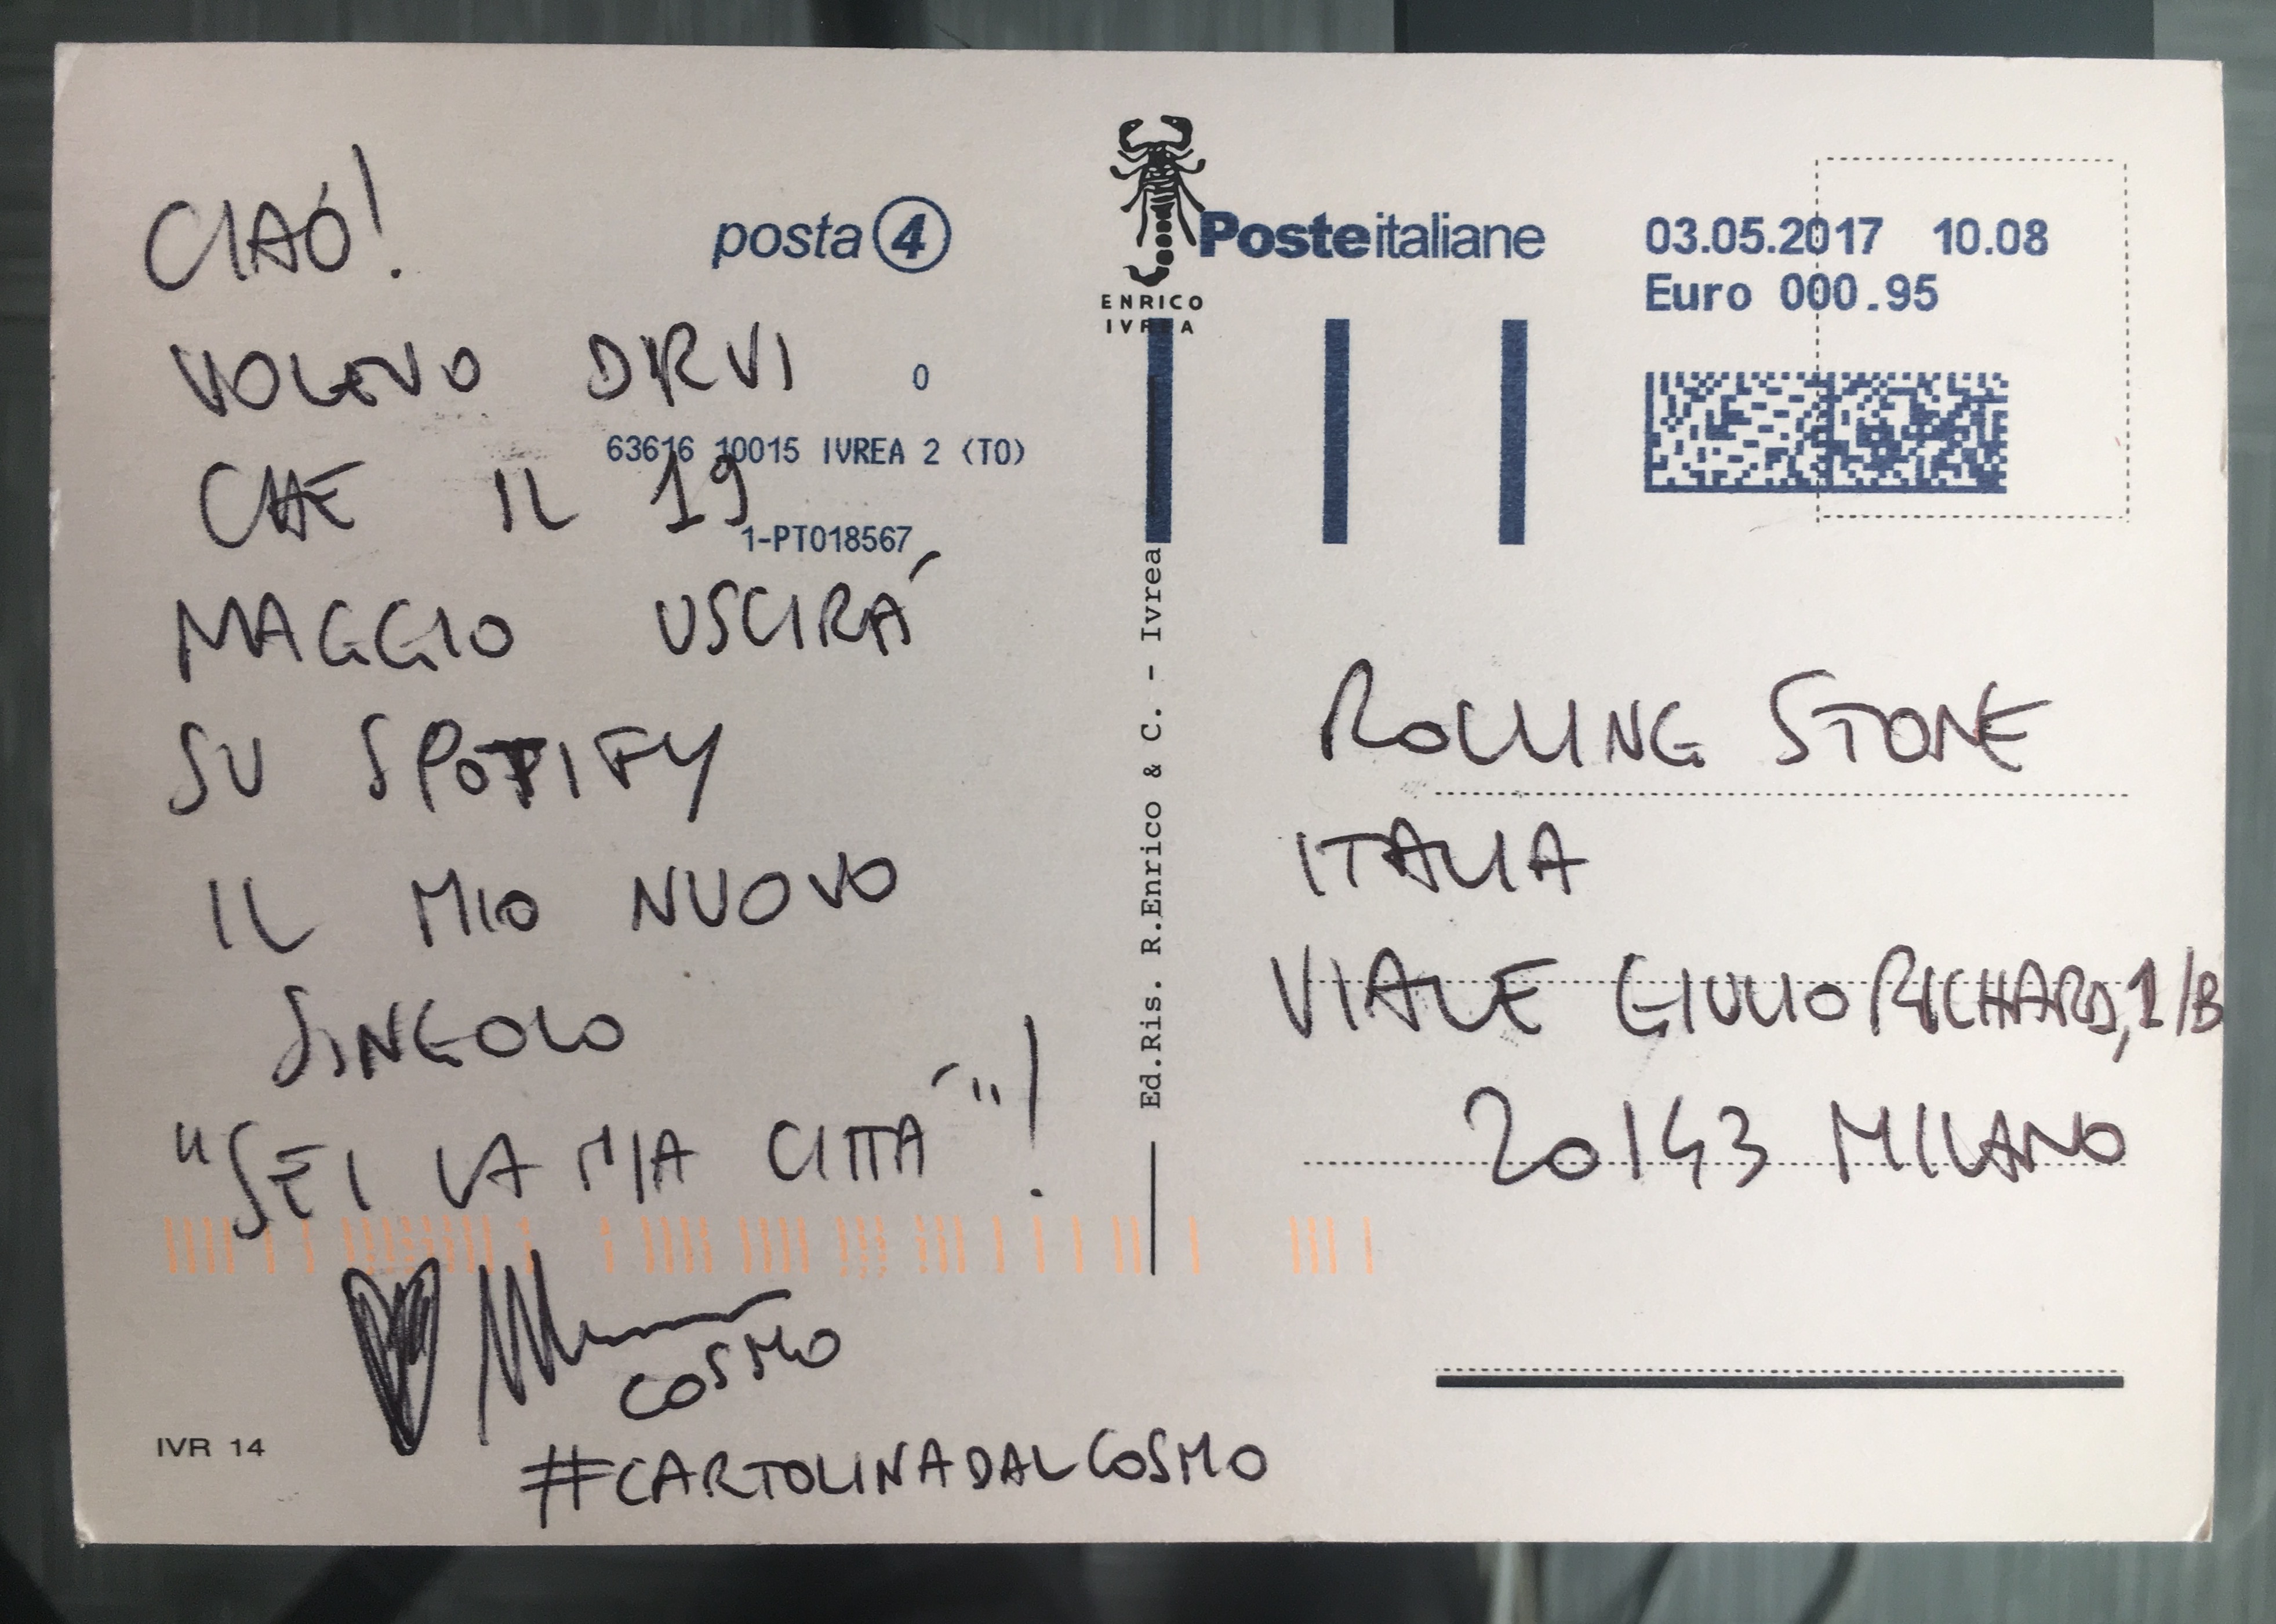 CIAÓ!
VOLEVO DIRVI
CHE IL 19
MAGGIO USCIRÁ
SU SPOTIFY
IL MIO NUOVO
SINGOLO
"SEI LA MIA CITTÁ"!
COSMO
#CARTOLINADALCOSMO
IVR 14
posta 4
0
63616 10015 IVREA 2 (TO)
1-PT018567
ENRICO
IVREA
Posteitaliane
03.05.2017 10.08
Euro 000.95
Ed.Ris. R.Enrico & C. - Ivrea
ROLLING STONE
ITALIA
VIALE GIULIO RICHARD, 1/B
20143 MILANO